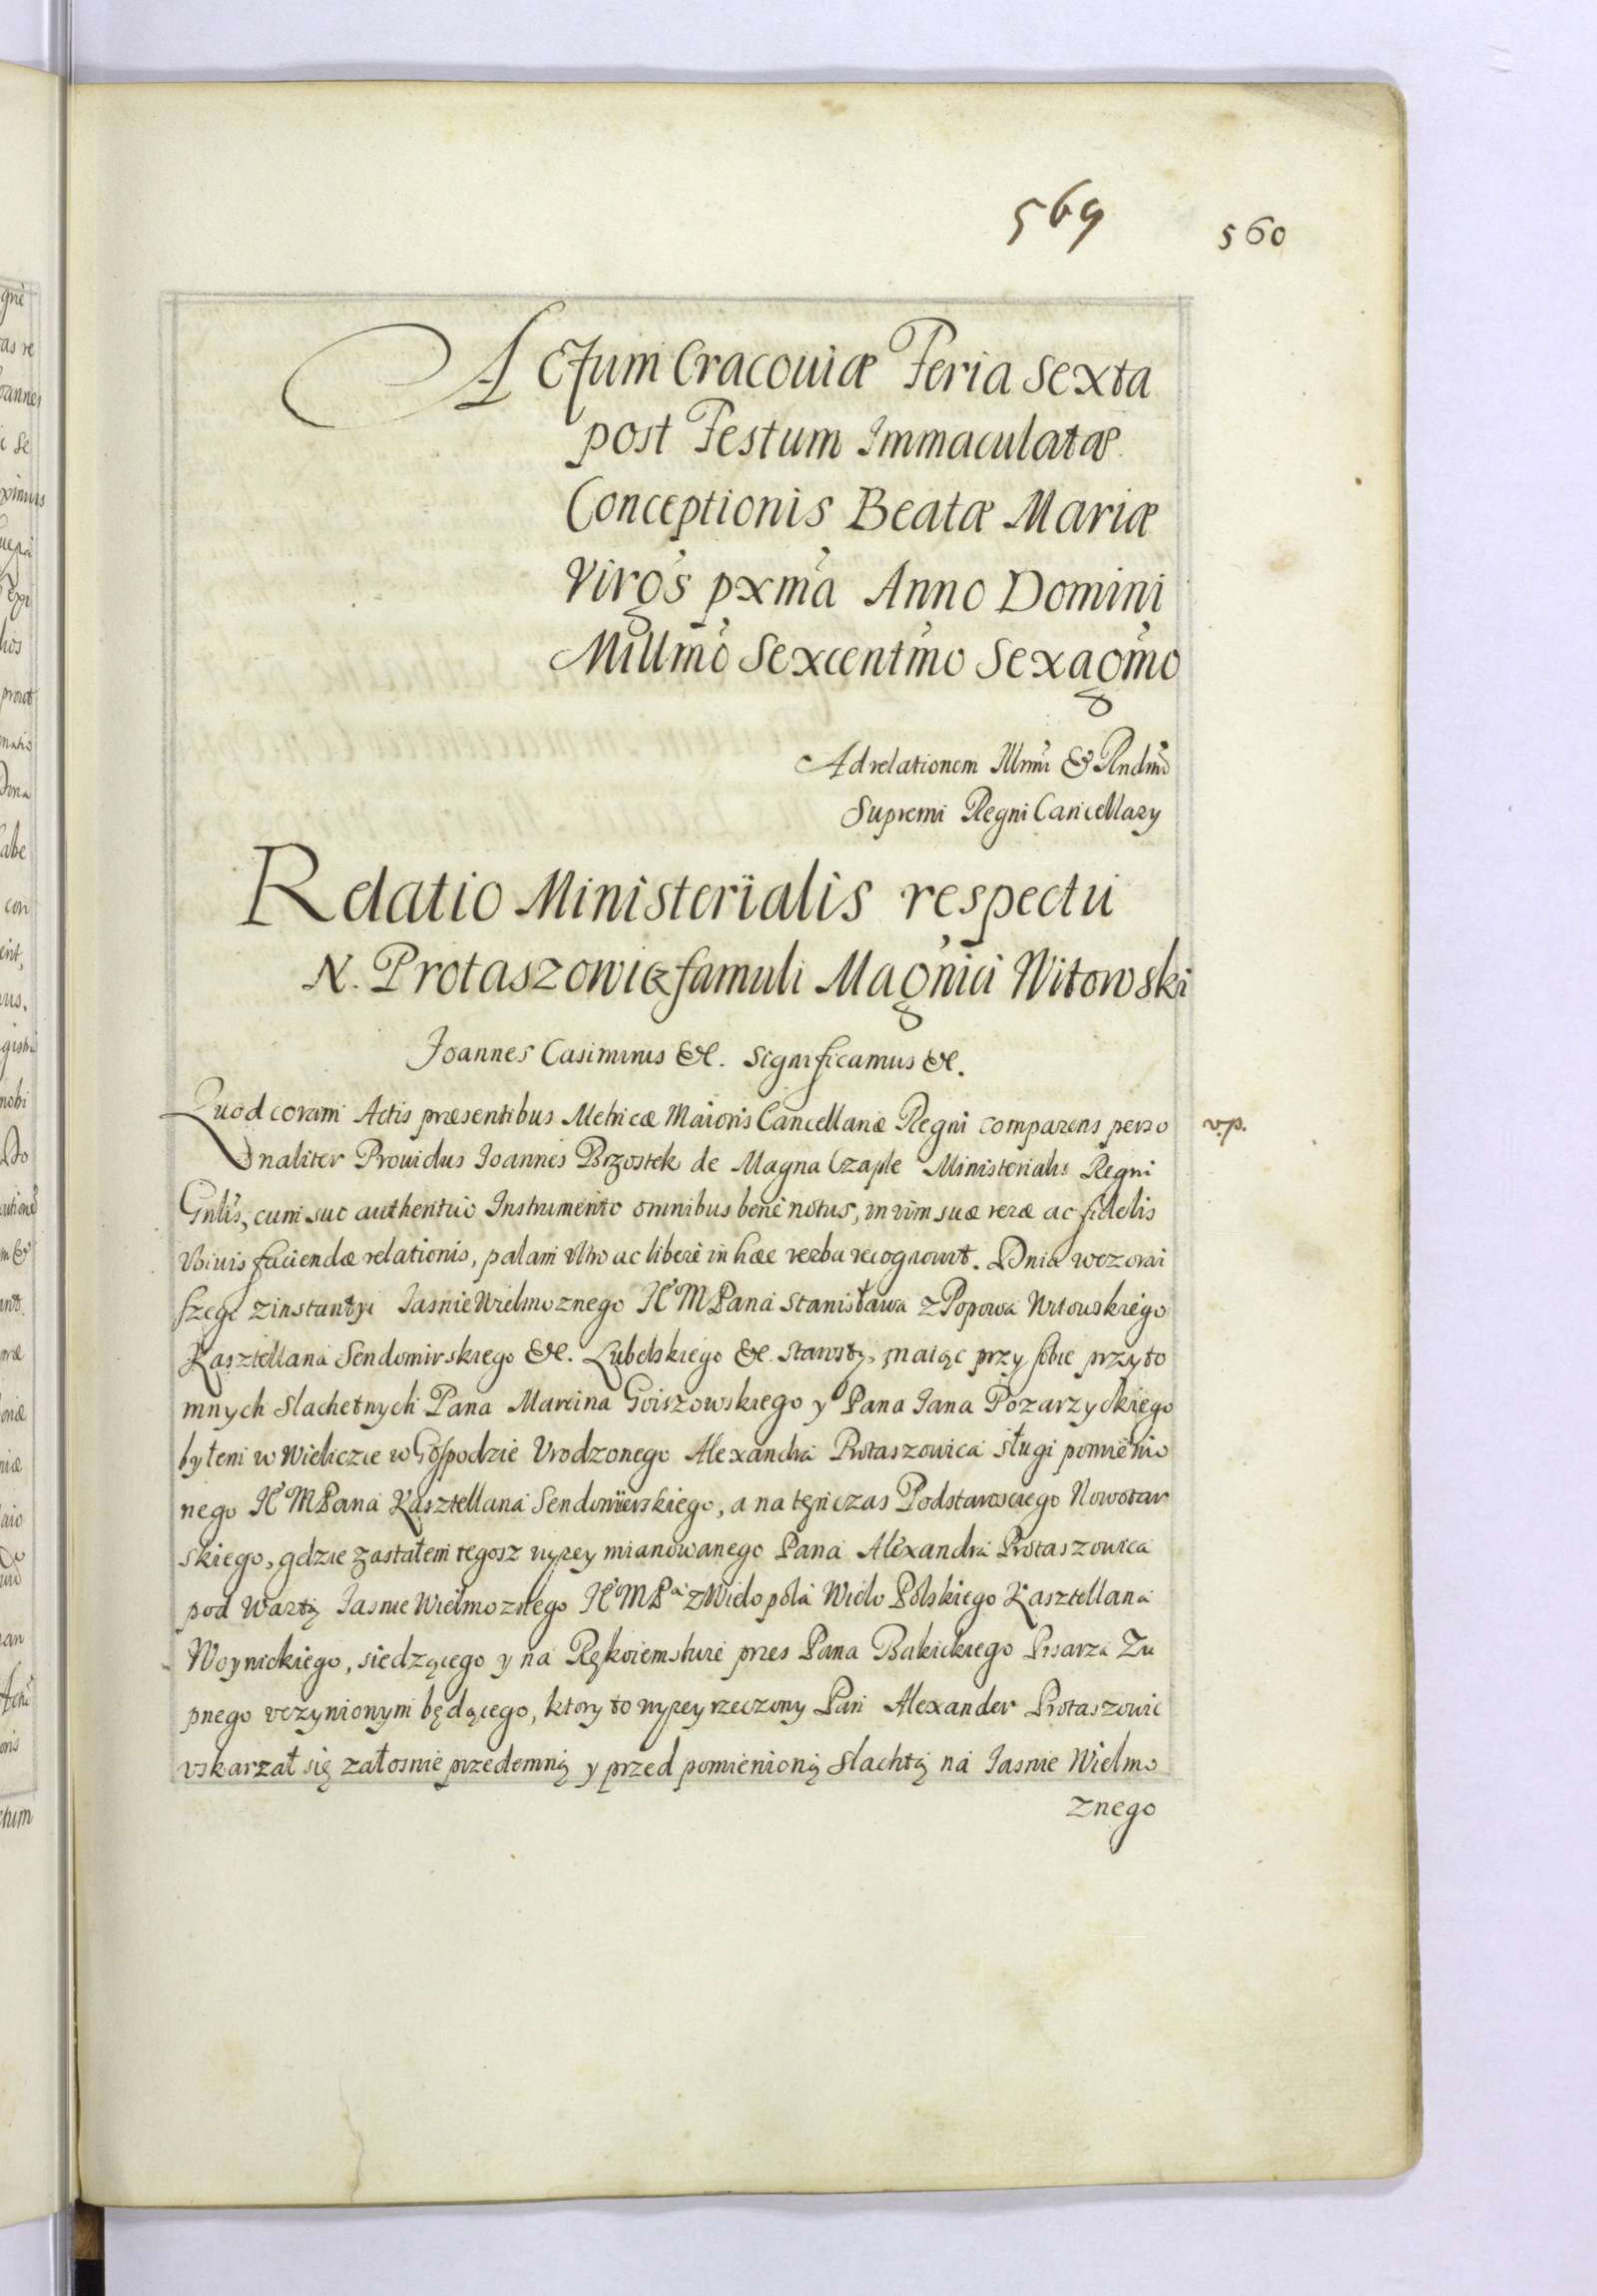 569
560
Actum Cracouiæ Feria Sexta
post Festum Immaculatæ
Conceptionis Beatæ Mariæ
Virg's pxm'a Anno Domini
Millm'o Sexcentm'o Sexagm'o
Ad relationem Illmi & Rndmi
Supremi Regni Cancellary
Relatio Ministerialis respectu
N. Protaszowic famuli Mag'nici Witowski
Joannes Casimirus &c. Significamus &c.
Quod coram Actis præsentibus Metricæ Maioris Cancellariæ Regni comparens perso
v.p.
naliter Prouidus Joannes Brzostek de Magna Czaple Ministerialis Regni
Gnlis, cum suo authentico Instrumento omnibus bene notus, in vim suæ veræ ac fidelis
vbiuis faciendæ relationis, palam vltro ac libere in hæc verba recognouit. Dnia wczorai
szego z instantyi Jasnie Wielmoznego JeoMPana Stanisława z Popowa Witouskiego
Kasztellana Sendomirskiego &c. Lubelskiego &c. Starosty, maiąc przy sobie przyto
mnych Slachetnych Pana Marcina Goiszowskiego y Pana Jana Pozarzyckiego
byłem w Wieliczce w Gospodzie Vrodzonego Alexandra Protaszowica sługi pomienio
nego JeoMPana Kasztellana Sendomierskiego, a na tęnczas Podstarosciego Nowotar
skiego, gdzie zastałem tegosz wyzey mianowanego Pana Alexandra Protaszowica
pod Wartą Jasnie Wielmoznego JeoMPa z Wielopola Wielo Polskiego Kasztellana
Woynickiego, siedzącego y na Rękoiemstwie przes Pana Bakickiego Pisarza Zu
pnego vczynionym będącego, ktory to wyzey rzeczony Pan Alexander Protaszowic
vskarzał się załosnie przedemną y przed pomienioną Slachtą na Jasnie Wielmo
znego